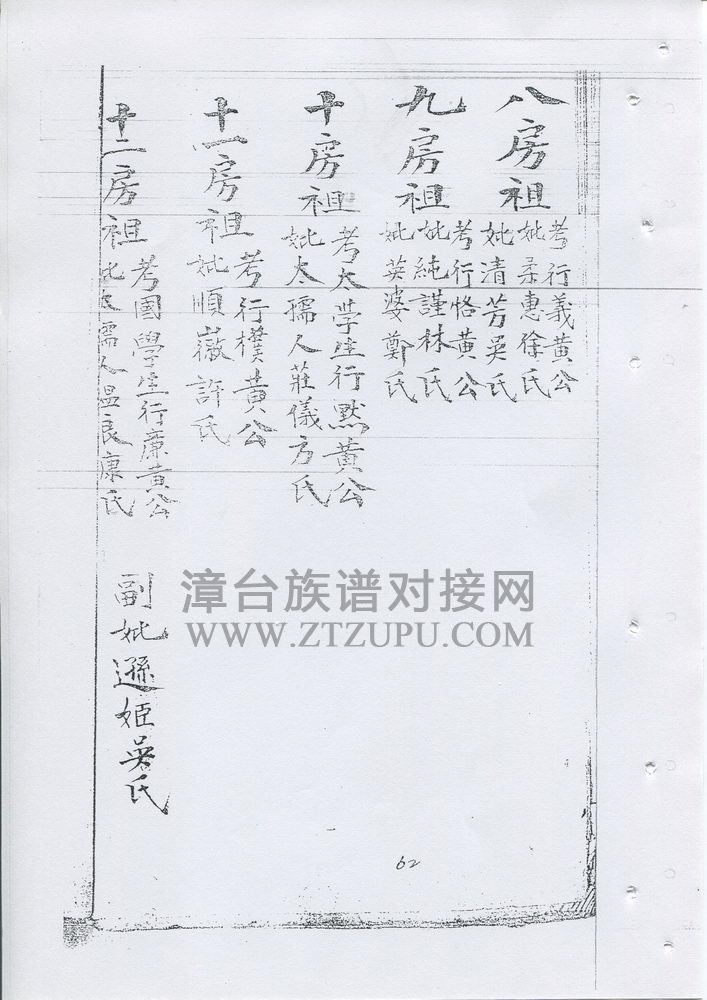 八房祖
考行義黃公
妣柔惠徐氏
妣清芳吳氏
九房祖
考行恪黃公
妣純謹林氏
妣英婆鄭氏
十房祖
考太學生行默黃公
妣太孺人莊儀方氏
十一房祖
考行樸黃公
妣順嶶許氏
十二房祖
考國學生行廉黃公
妣太孺人温良康氏
副妣遜姬吳氏
漳台族谱对接网
WWW.ZTZUPU.COM
62